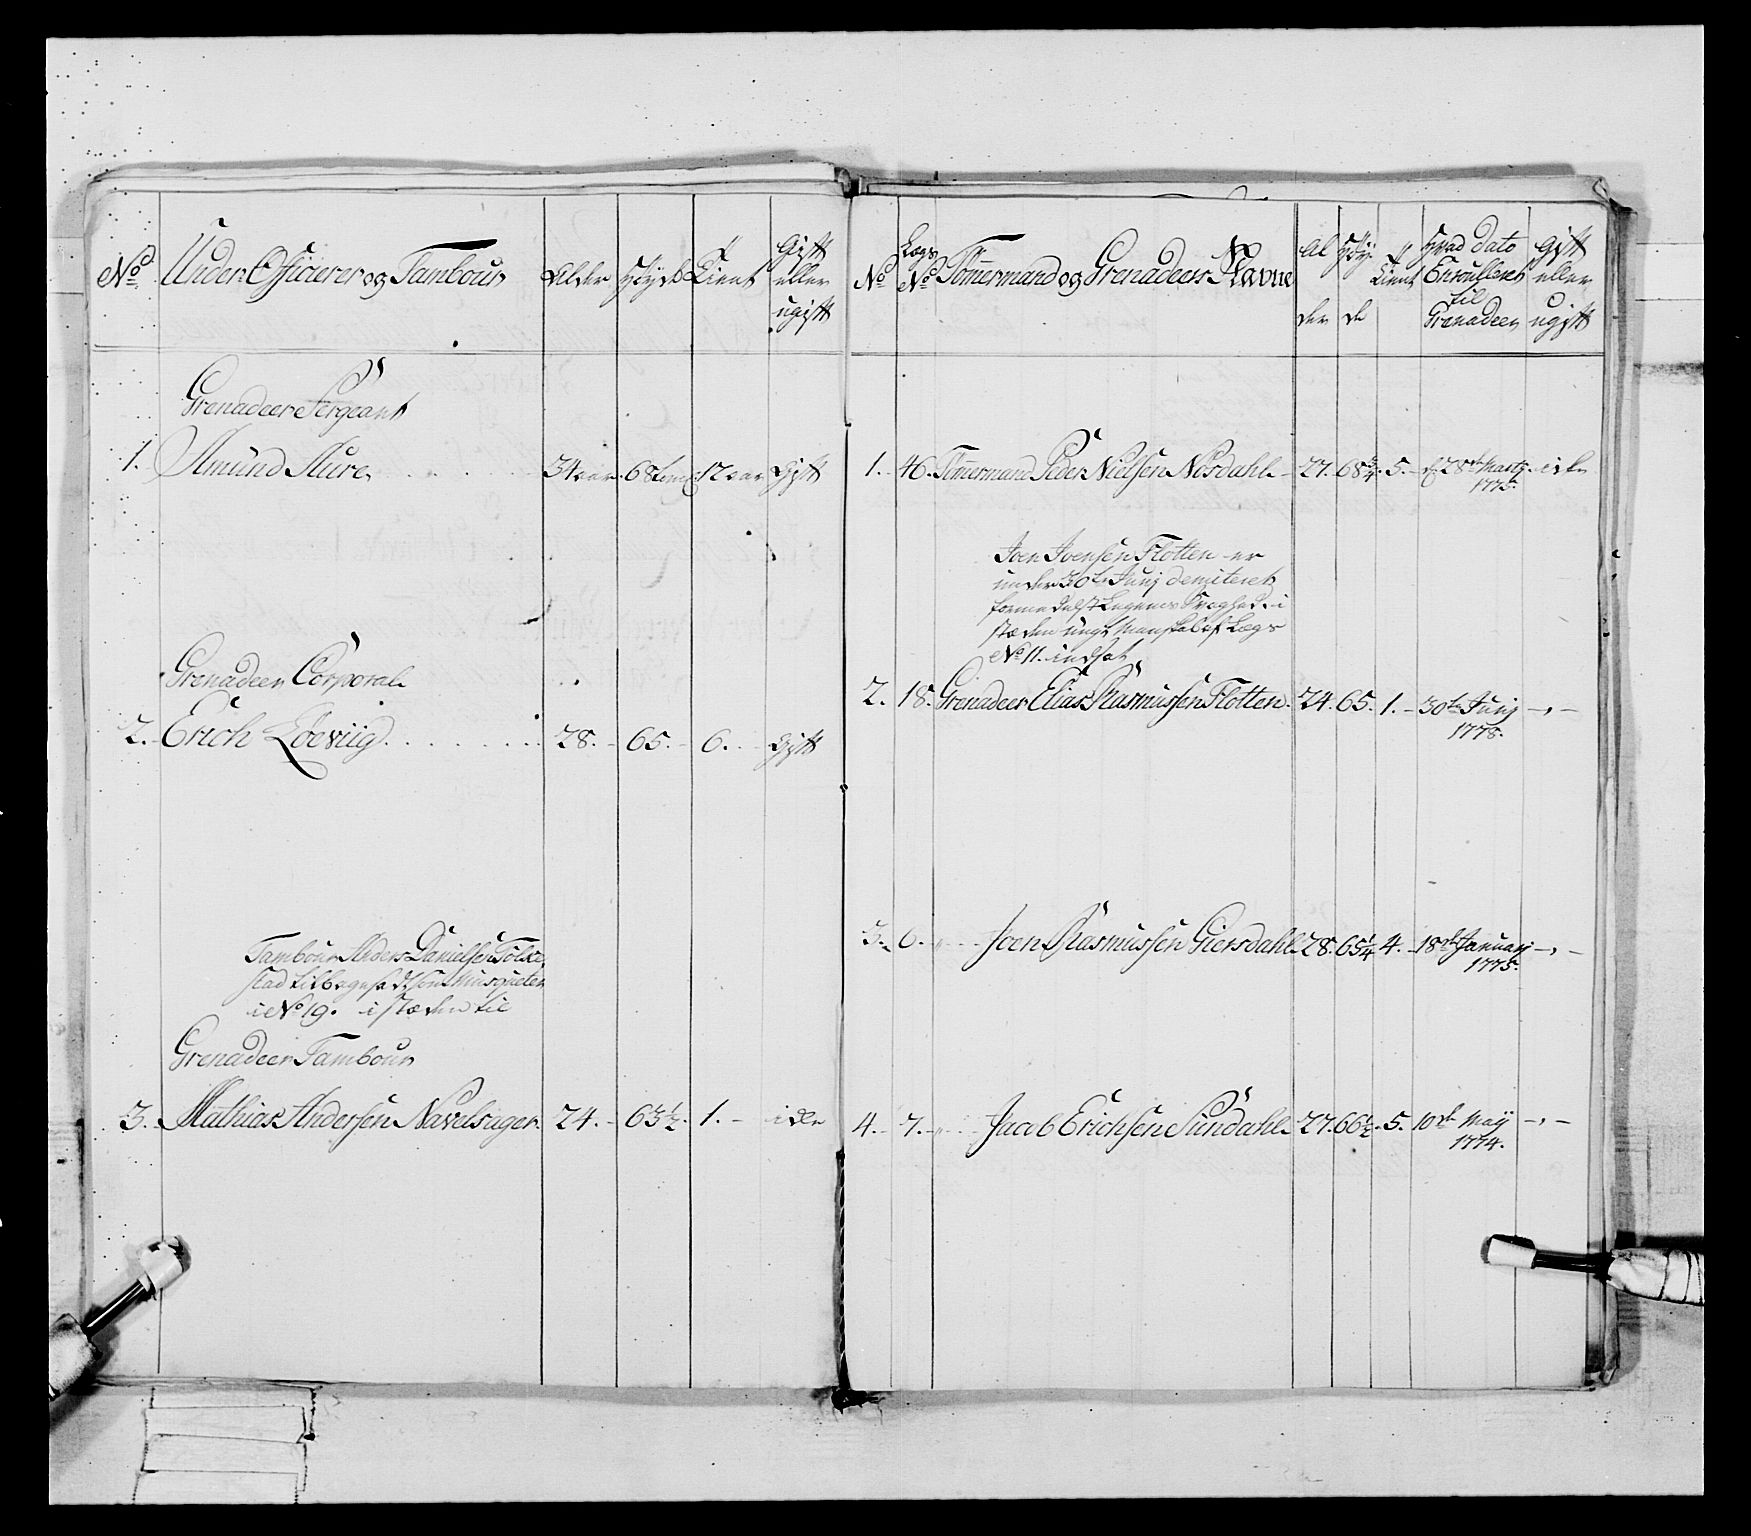 No Under Officerer og Tambour Alder Høyde Tient Gift eller ugift
Grenadeer Sergeant
1. Amund Aure 34 aar. 68 tom. 12 aar Gift
Grenadeer Corporal
2. Erich Loeviig 28. 65. 6. Gift
Tambour Anders Danielsen
stad tilbagesadt som Musqueteer
i No 19. i stæden til
Grenadeer Tambour
3. Mathias Andersen Navelsager 24. 63 1/2. 1. icke
No Legs No Tømmermand og Grenadeers Navne Al der Høy de Tient Hvad dato Enroulleret til Grenadeer gift eller ugift
1. 46. Tømmermand Peder Nielsen Nosdahl 27. 68 3/4 5. d 28de Marty 1775. icke
Joen Joensen Flotten er
under 30te Junj demiteret
formedelst Legems Svaghed. i
stæden ungt Manskab af Legs
No 11. indsat
2. 18. Grenadeer Elias Rasmussen Flotten 24. 65. 1. 30te Junj 1778. -,-
3. 6. Joen Rasmussen Giersdahl 28. 65 1/4 4. 18de Januarj 1775. -,-
4. 7. Jacob Erichsen Sundahl 27. 66 1/2. 5. 10de Maij 1774. -,-